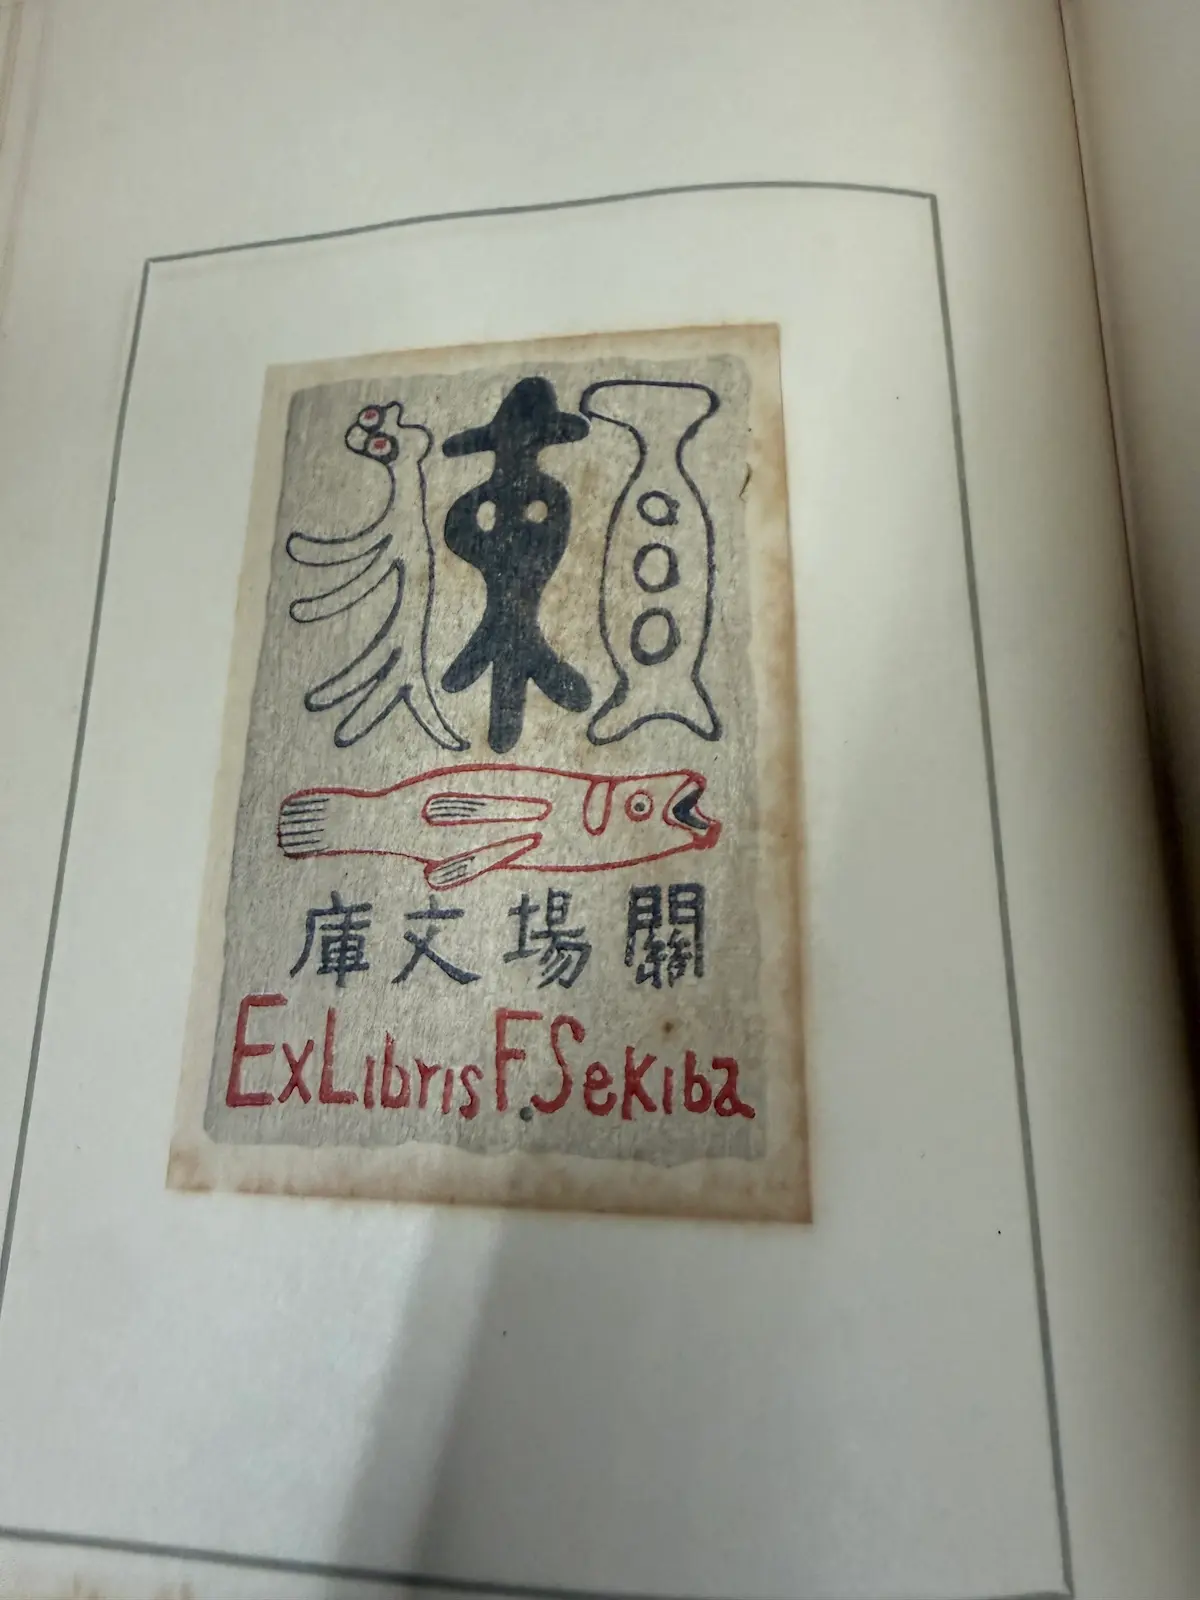 關場文庫
ExLibris F.Sekiba